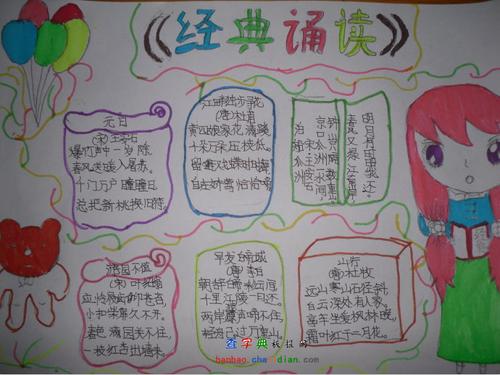 《经典诵读》
元日
(宋)王安石
爆竹声中一岁除
春风送暖入屠苏。
千门万户曈曈日
总把新桃换旧符。
江畔独步寻花
(唐)杜甫
黄四娘家花满蹊
千朵万朵压枝低。
留连戏蝶时时舞
自在娇莺恰恰啼
泊船瓜洲
京口瓜洲一水间
钟山只隔数重山。
春风又绿江南岸
明月何时照我还。
游园不值
(宋)叶绍翁
应怜屐齿印苍苔,
小扣柴扉久不开。
春色满园关不住,
一枝红杏出墙来。
早发白帝城
(唐)李白
朝辞白帝彩云间
千里江陵一日还。
两岸猿声啼不住,
轻舟已过万重山。
山行
(唐)杜牧
远山寒山石径斜
白云深处有人家。
停车坐爱枫林晚,
霜叶红于二月花。
查字典板报网
banbao.chazidian.com